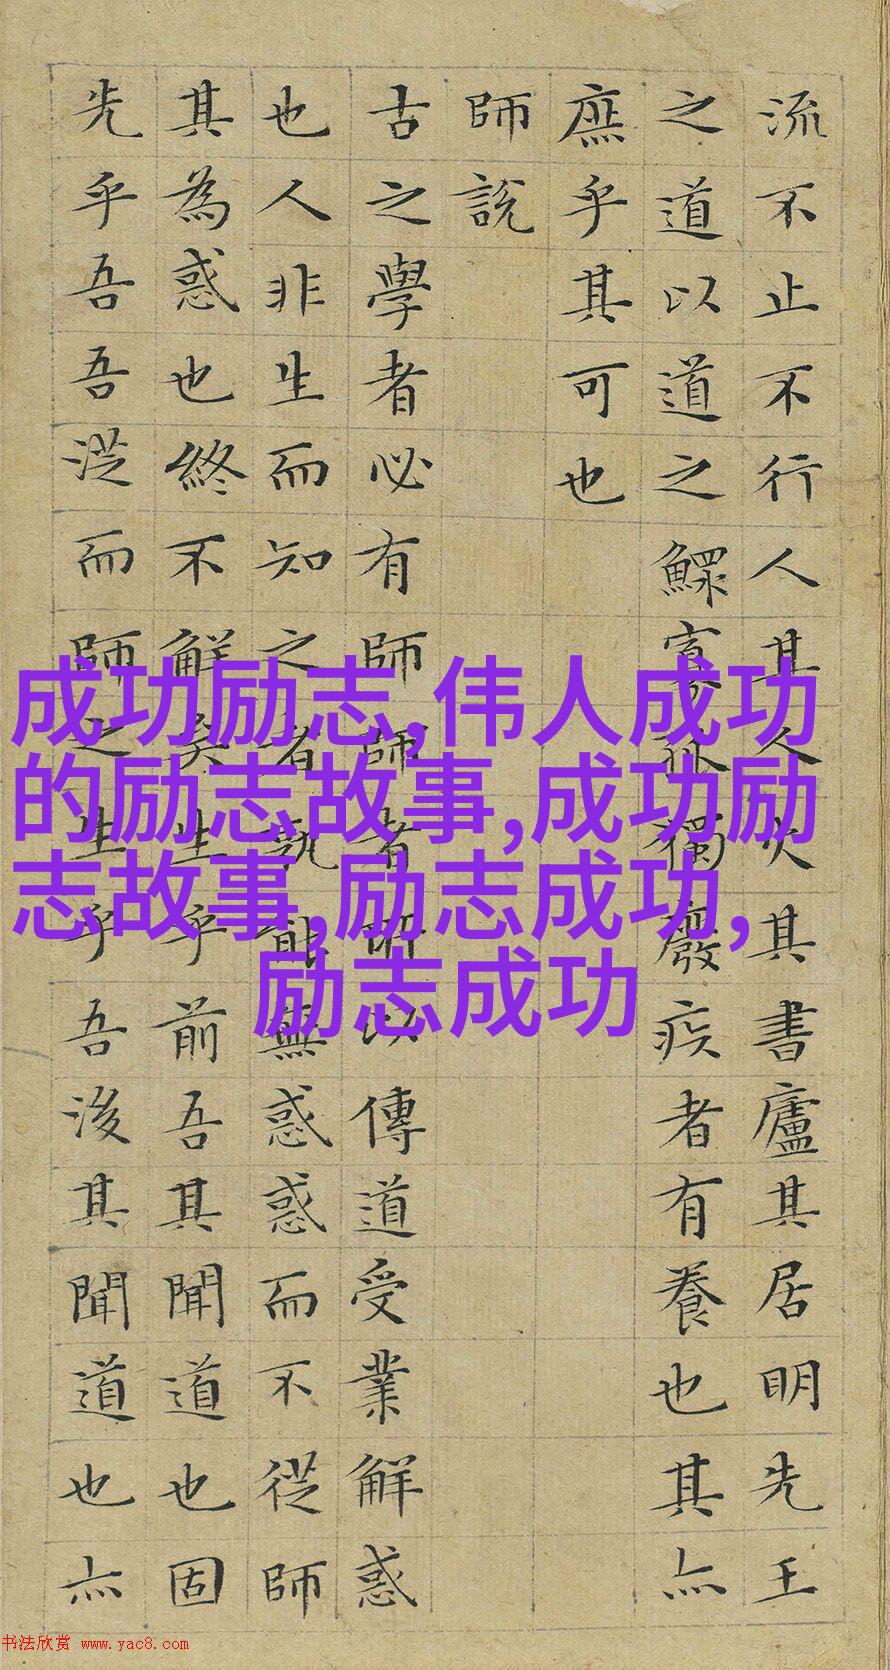 流不止不行人其人火其書廬其居明先王
之道以道之鰥寡孤獨廢疾者有養也其亦
庶乎其可也
師說
古之學者必有師師者所以傳道受業解惑
也人非生而知之者孰能無惑惑而不從師
其為惑也終不解矣生乎前吾其聞道也固
先乎吾吾從而師之生乎吾後其聞道也亦
成功励志,伟人成功
的励志故事,成功励
志故事,励志成功,
励志成功
书法欣赏 www.yac8.com